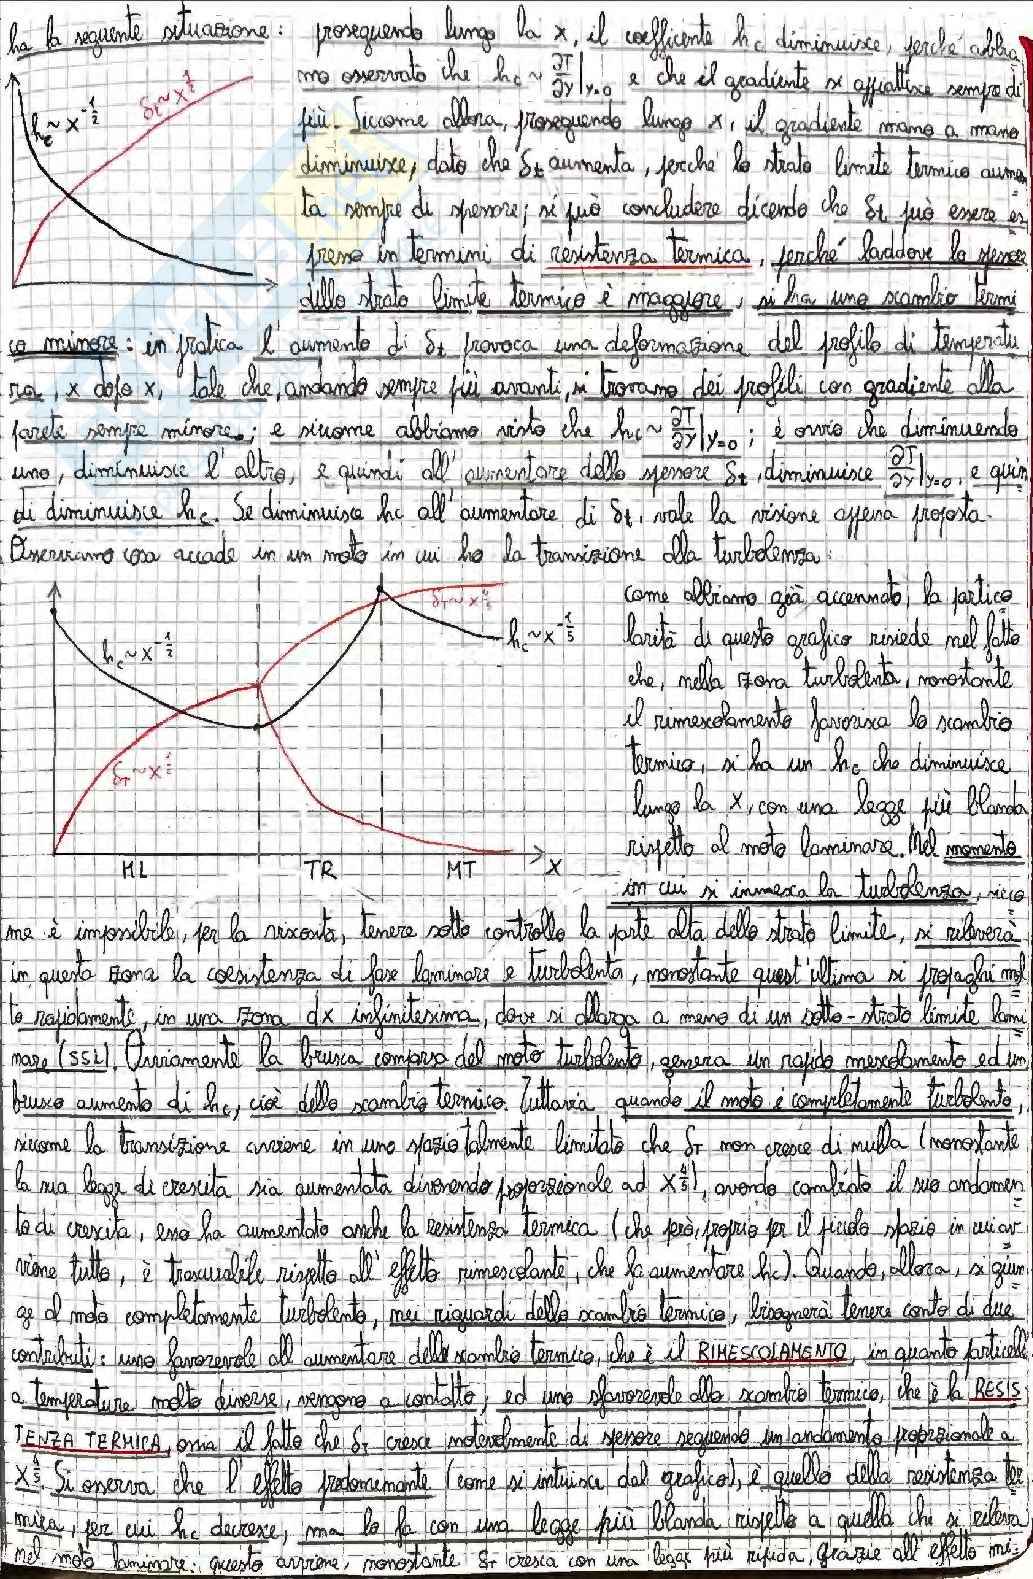 ha la seguente situazione: proseguendo lungo la x, il coefficente hc diminuisce, perché abbia
mo osservato che hc ~ ∂T/∂y|y=0 e che il gradiente si appiattisce sempre di
più. Siccome allora, proseguendo lungo x, il gradiente mano a mano
diminuisce, dato che δt aumenta, perché lo strato limite termico aumen
ta sempre di spessore; si può concludere dicendo che δt può essere es
presso in termini di resistenza termica, perché laddove lo spessore
dello strato limite termico è maggiore, si ha uno scambio termi
co minore: in pratica l'aumento di δt provoca una deformazione del profilo di temperatu
ra, x dopo x, tale che, andando sempre più avanti, si trovano dei profili con gradiente alla
parete sempre minore; e siccome abbiamo visto che hc ~ ∂T/∂y|y=0; è ovvio che diminuendo
uno, diminuisce l'altro, e quindi all'aumentare dello spessore δt, diminuisce ∂T/∂y|y=0, e quin
di diminuisce hc. Se diminuisce hc all'aumentare di δt, vale la visione appena proposta.
Osserviamo cosa accade in un moto in cui ho la transizione alla turbolenza:
hc ~ x^-1/2
δt ~ x^1/2
hc ~ x^-1/2
δT ~ x^1/2
δT ~ x^4/5
hc ~ x^-1/5
ML TR MT X
come abbiamo già accennato, la partico
larità di questo grafico risiede nel fatto
che, nella zona turbolenta, nonostante
il rimescolamento favorisca lo scambio
termico, si ha un hc che diminuisce
lungo la x, con una legge più blanda
rispetto al moto laminare. Nel momento
in cui si innesca la turbolenza, sicco
me è impossibile, per la viscosità, tenere sotto controllo la parte alta dello strato limite, si rileverà
in questa zona la coesistenza di fase laminare e turbolenta, nonostante quest'ultima si propaghi mol
to rapidamente, in una zona dx infinitesima, dove si allarga a meno di un sotto-strato limite lami
nare (SSL). Ovviamente la brusca comparsa del moto turbolento, genera un rapido mescolamento ed un
brusco aumento di hc, cioè dello scambio termico. Tuttavia quando il moto è completamente turbolento,
siccome la transizione avviene in uno spazio talmente limitato che δT non cresce di nulla (nonostante
la sua legge di crescita sia aumentata divenendo proporzionale ad x^4/5), avendo cambiato il suo andamen
to di crescita, esso ha aumentato anche la resistenza termica (che però, proprio per il piccolo spazio in cui av
viene tutto, è trascurabile rispetto all'effetto rimescolante, che fa aumentare hc). Quando, allora, si giun
ge al moto completamente turbolento, nei riguardi dello scambio termico, bisognerà tenere conto di due
contributi: uno favorevole all'aumentare dello scambio termico, che è il RIMESCOLAMENTO, in quanto particelle
a temperature molto diverse, vengono a contatto; ed uno sfavorevole allo scambio termico, che è la RESIS
TENZA TERMICA, ossia il fatto che δT cresce notevolmente di spessore seguendo un andamento proporzionale a
x^4/5. Si osserva che l'effetto predominante (come si intuisce dal grafico), è quello della resistenza ter
mica, per cui hc decresce, ma lo fa con una legge più blanda rispetto a quella che si rileva
nel moto laminare: questo avviene, nonostante δT cresca con una legge più ripida, grazie all'effetto mi=